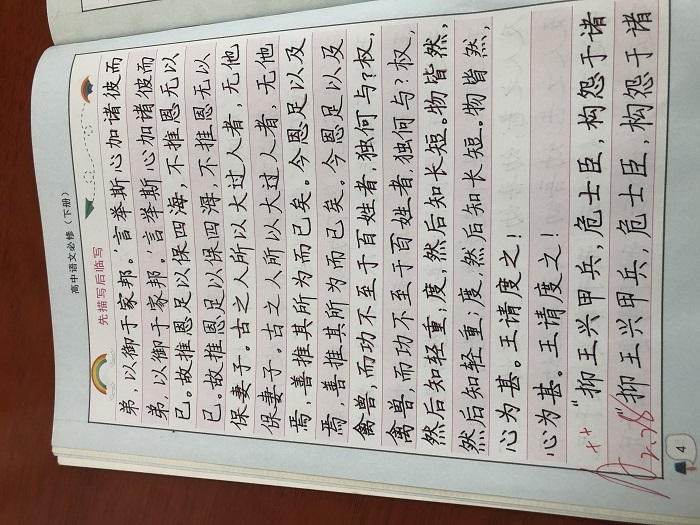 高中语文必修（下册）
先描写后临写
弟，以御于家邦。'言举斯心加诸彼而
弟，以御于家邦。'言举斯心加诸彼而
已。故推恩足以保四海，不推恩无以
已。故推恩足以保四海，不推恩无以
保妻子。古之人所以大过人者，无他
保妻子。古之人所以大过人者，无他
焉，善推其所为而已矣。今恩足以及
焉，善推其所为而已矣。今恩足以及
禽兽，而功不至于百姓者，独何与？权，
禽兽，而功不至于百姓者，独何与？权，
然后知轻重；度，然后知长短。物皆然，
然后知轻重；度，然后知长短。物皆然，
心为甚。王请度之！
心为甚。王请度之！
“抑王兴甲兵，危士臣，构怨于诸
“抑王兴甲兵，危士臣，构怨于诸
4